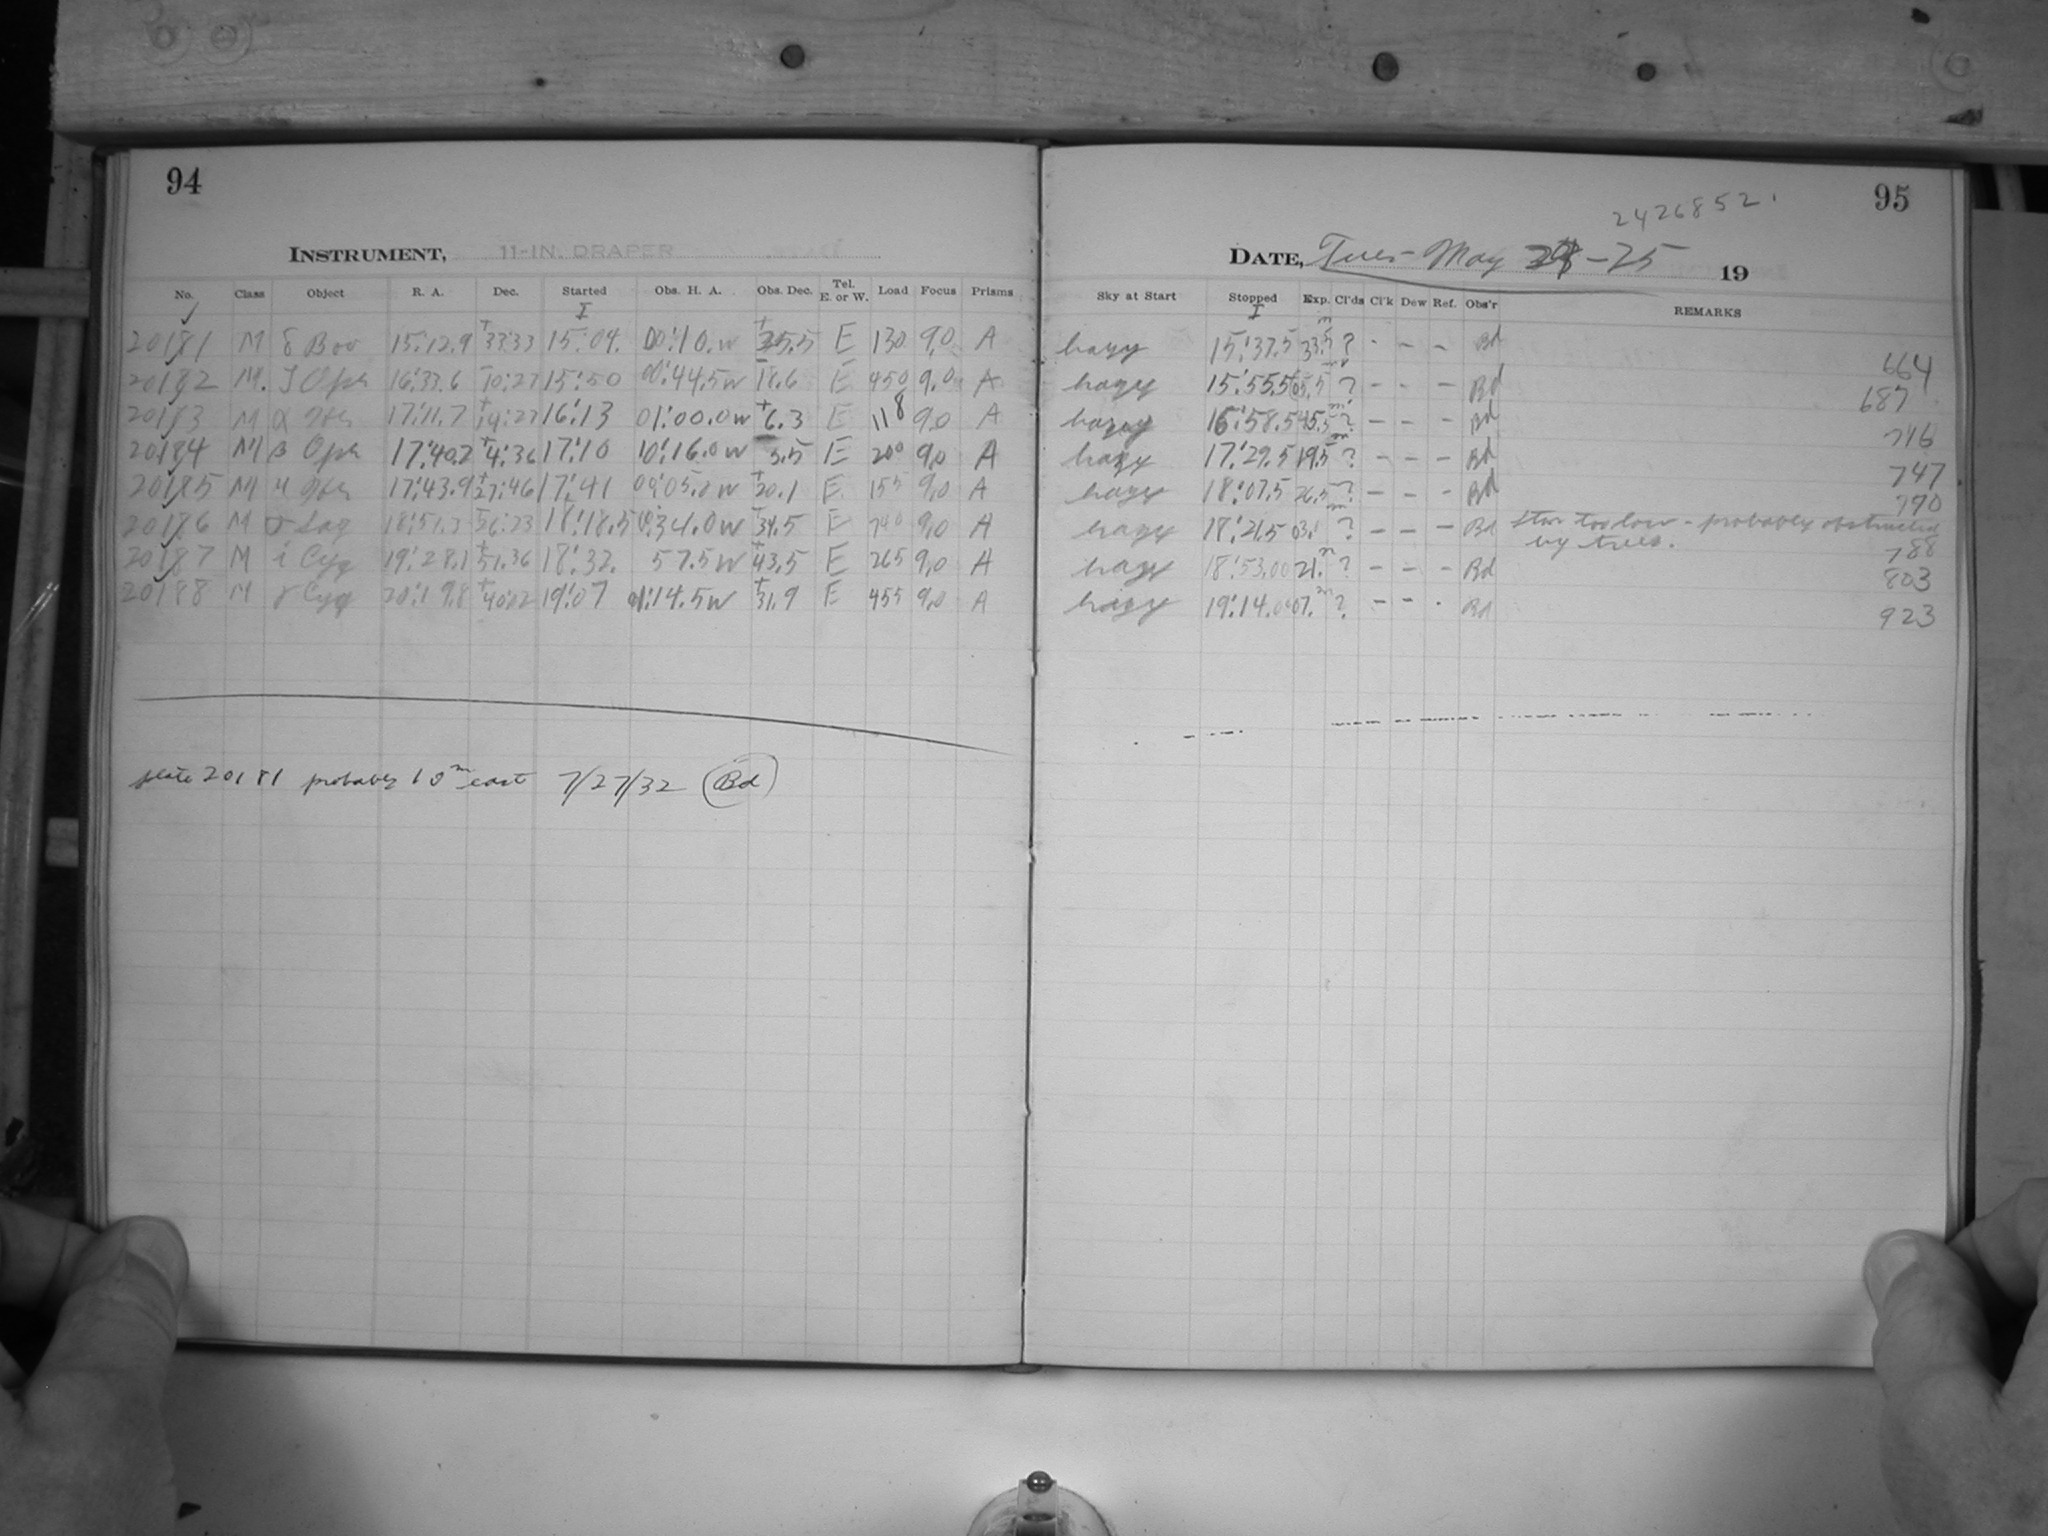 94
INSTRUMENT, 11-IN. DRAPER
No. Class Object R. A. Dec. Started Obs. H. A. Obs. Dec. Tel. E. or W. Load Focus Prisms
I
20181 M δ Boo 15:12.9 +33:33 15:04. 00:10.W +25.5 E 130 9.0 A
20182 M. ζ Oph 16:33.6 -10:23 15:50 00:44.5W -18.6 E 450 9.0 A
20183 M α Her 17:11.7 +14:27 16:13 01:00.0W +6.3 E 118 9.0 A
20184 M β Oph 17:40.2 +4:36 17:10 10:16.0W 3.5 E 200 9.0 A
20185 M μ Her 17:43.9 +27:46 17:41 00:05.0W +20.1 E 155 9.0 A
20186 M σ Sag 18:51.3 -26:23 18:18.5 0:34.0W -34.5 E 740 9.0 A
20187 M i Cyg 19:28.1 +51.36 18:32. 57.5W +43.5 E 265 9.0 A
20188 M γ Cyg 20:19.8 +40:02 19:07 01:14.5W +31.9 E 455 9.0 A
plate 20181 probably 10m east 7/27/32 (Bd)
95
2426852.
DATE, Tues- May -25 19
Sky at Start Stopped Exp. Cl'ds Cl'k Dew Ref. Obs'r REMARKS
I
hazy 15:37.5 33.5m ? - - - Bd 664
hazy 15:55.5 05.5m ? - - - Bd 687
hazy 16:58.5 45.5m ? - - - Bd 716
hazy 17:29.5 19.5m ? - - - Bd 747
hazy 18:07.5 26.5m ? - - - Bd 770
hazy 18:21.5 03.m ? - - - Bd Star too low - probably obstructed
by trees. 788
hazy 18:53.00 21.m ? - - - Bd 803
hazy 19:14.00 07.m ? - - - Bd 923